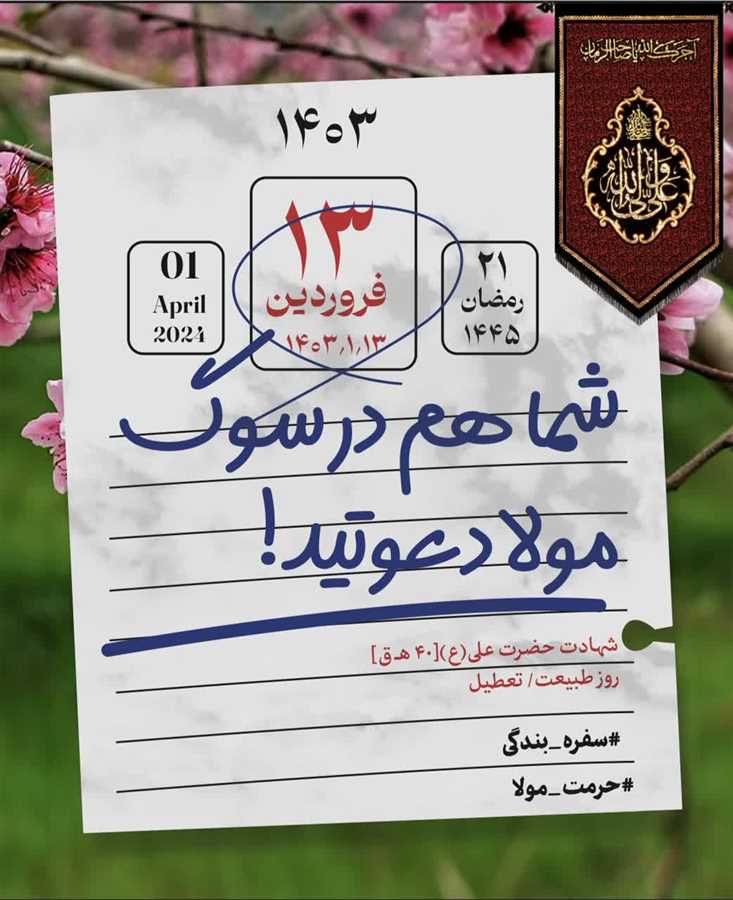 آجرک الله یا صاحب الزمان
علی ولی الله
۱۴۰۳
۱۳
فروردین
۱۴۰۳٫۱٫۱۳
01
April
2024
۲۱
رمضان
۱۴۴۵
شما هم در سوگ
مولا دعوتید!
شهادت حضرت علی(ع)[۴۰ هـ ق]
روز طبیعت/ تعطیل
#سفره_بندگی
#حرمت_مولا